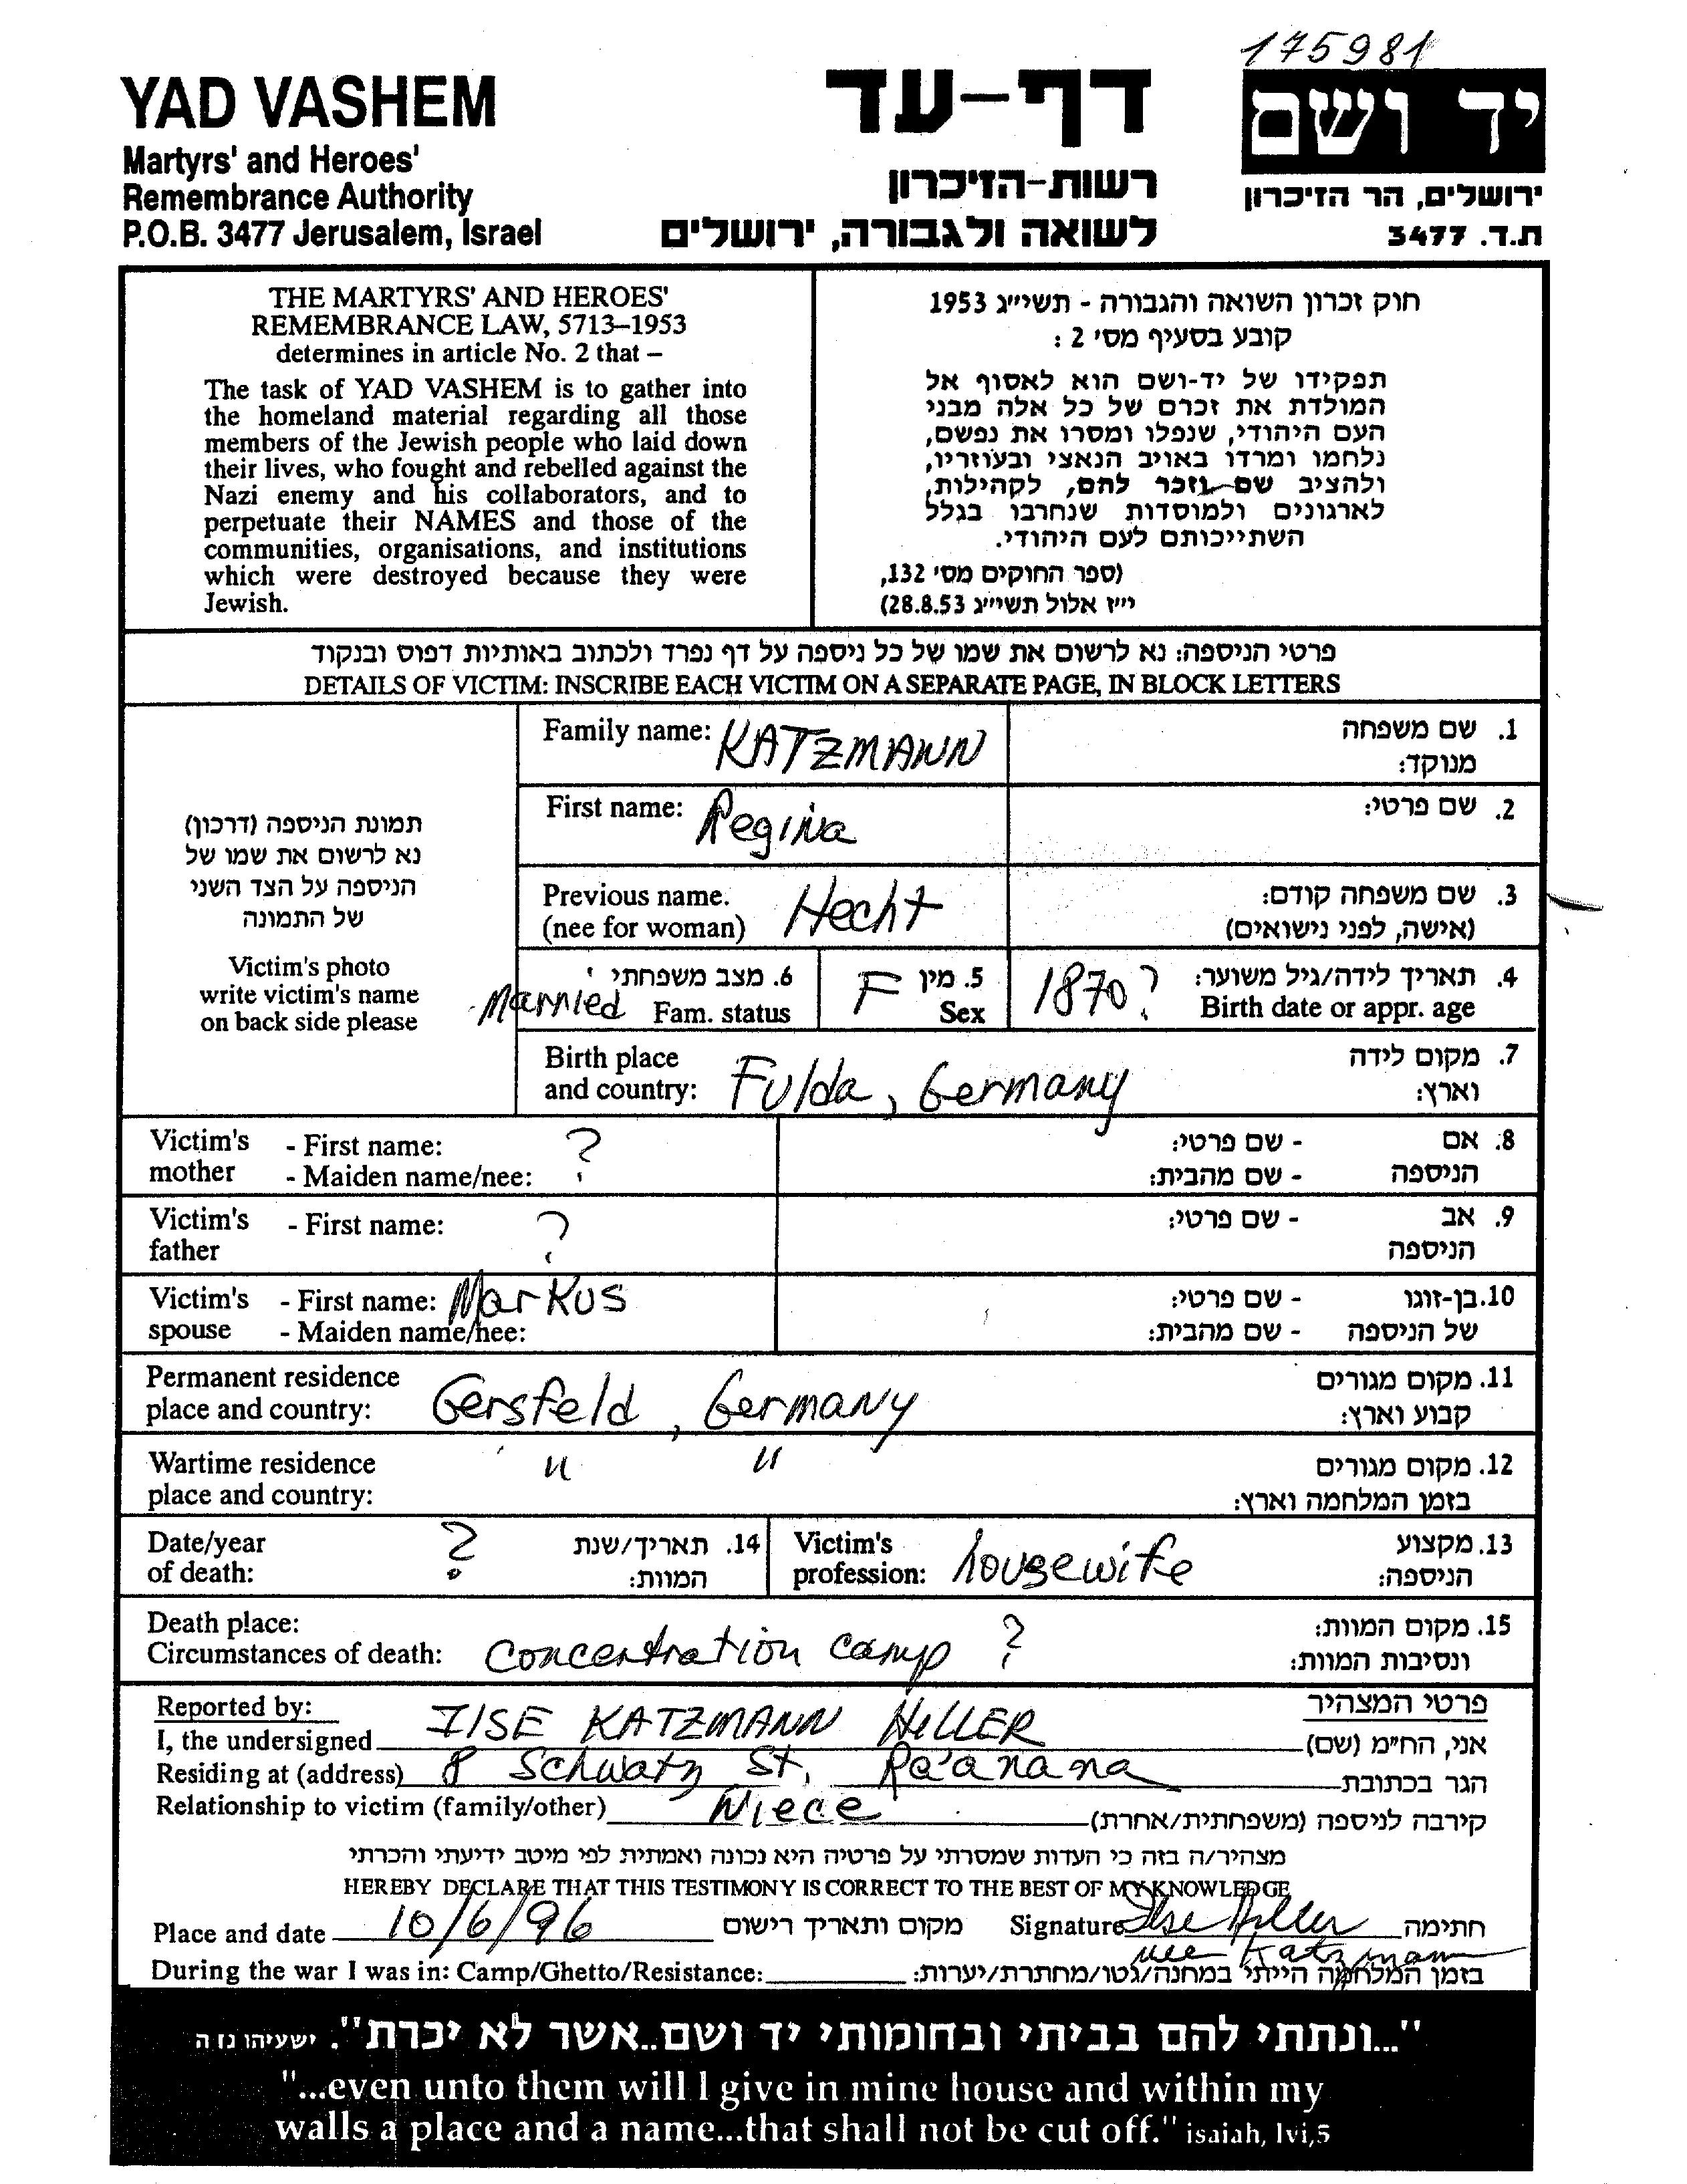 175981
YAD VASHEM
Martyrs' and Heroes'
Remembrance Authority
P.O.B. 3477 Jerusalem, Israel
דף-עד
רשות-הזיכרון
לשואה ולגבורה, ירושלים
יד ושם
ירושלים, הר הזיכרון
ת.ד. 3477
THE MARTYRS' AND HEROES'
REMEMBRANCE LAW, 5713–1953
determines in article No. 2 that –
The task of YAD VASHEM is to gather into
the homeland material regarding all those
members of the Jewish people who laid down
their lives, who fought and rebelled against the
Nazi enemy and his collaborators, and to
perpetuate their NAMES and those of the
communities, organisations, and institutions
which were destroyed because they were
Jewish.
חוק זכרון השואה והגבורה - תשי"ג 1953
קובע בסעיף מס' 2 :
תפקידו של יד-ושם הוא לאסוף אל
המולדת את זכרם של כל אלה מבני
העם היהודי, שנפלו ומסרו את נפשם,
נלחמו ומרדו באויב הנאצי ובעוזריו,
ולהציב שם וזכר להם, לקהילות,
לארגונים ולמוסדות שנחרבו בגלל
השתייכותם לעם היהודי.
(ספר החוקים מס' 132,
י"ז אלול תשי"ג 28.8.53)
פרטי הניספה: נא לרשום את שמו של כל ניספה על דף נפרד ולכתוב באותיות דפוס ובנקוד
DETAILS OF VICTIM: INSCRIBE EACH VICTIM ON A SEPARATE PAGE, IN BLOCK LETTERS
תמונת הניספה (דרכון)
נא לרשום את שמו של
הניספה על הצד השני
של התמונה
Victim's photo
write victim's name
on back side please
Family name: KATZMANN 1. שם משפחה
מנוקד:
First name: Regina 2. שם פרטי:
Previous name. Hecht 3. שם משפחה קודם:
(nee for woman) (אישה, לפני נישואים)
Married 6. מצב משפחתי F 5. מין 1870? 4. תאריך לידה/גיל משוער:
Fam. status Sex Birth date or appr. age
Birth place 7. מקום לידה
and country: Fulda, Germany וארץ:
Victim's - First name: ? - שם פרטי: 8. אם
mother - Maiden name/nee: - שם מהבית: הניספה
Victim's - First name: ? - שם פרטי: 9. אב
father הניספה
Victim's - First name: Markus - שם פרטי: 10. בן-זוגו
spouse - Maiden name/nee: - שם מהבית: של הניספה
Permanent residence 11. מקום מגורים
place and country: Gersfeld, Germany קבוע וארץ:
Wartime residence " " 12. מקום מגורים
place and country: בזמן המלחמה וארץ:
Date/year ? 14. תאריך/שנת Victim's 13. מקצוע
of death: המוות: profession: housewife הניספה:
Death place: 15. מקום המוות:
Circumstances of death: Concentration camp ? ונסיבות המוות:
Reported by: פרטי המצהיר
I, the undersigned ILSE KATZMANN HILLER אני, הח"מ (שם)
Residing at (address) 8 Schwatz St, Ra'anana הגר בכתובת
Relationship to victim (family/other) Niece קירבה לניספה (משפחתית/אחרת)
מצהיר/ה בזה כי העדות שמסרתי על פרטיה היא נכונה ואמתית לפי מיטב ידיעתי והכרתי
HEREBY DECLARE THAT THIS TESTIMONY IS CORRECT TO THE BEST OF MY KNOWLEDGE
Place and date 10/6/96 מקום ותאריך רישום Signature Ilse Hiller חתימה
nee Katzmann
During the war I was in: Camp/Ghetto/Resistance: בזמן המלחמה הייתי במחנה/גטו/מחתרת/יערות:
"...ונתתי להם בביתי ובחומותי יד ושם..אשר לא יכרת". ישעיהו נו ה
"...even unto them will I give in mine house and within my
walls a place and a name...that shall not be cut off." isaiah, lvi,5